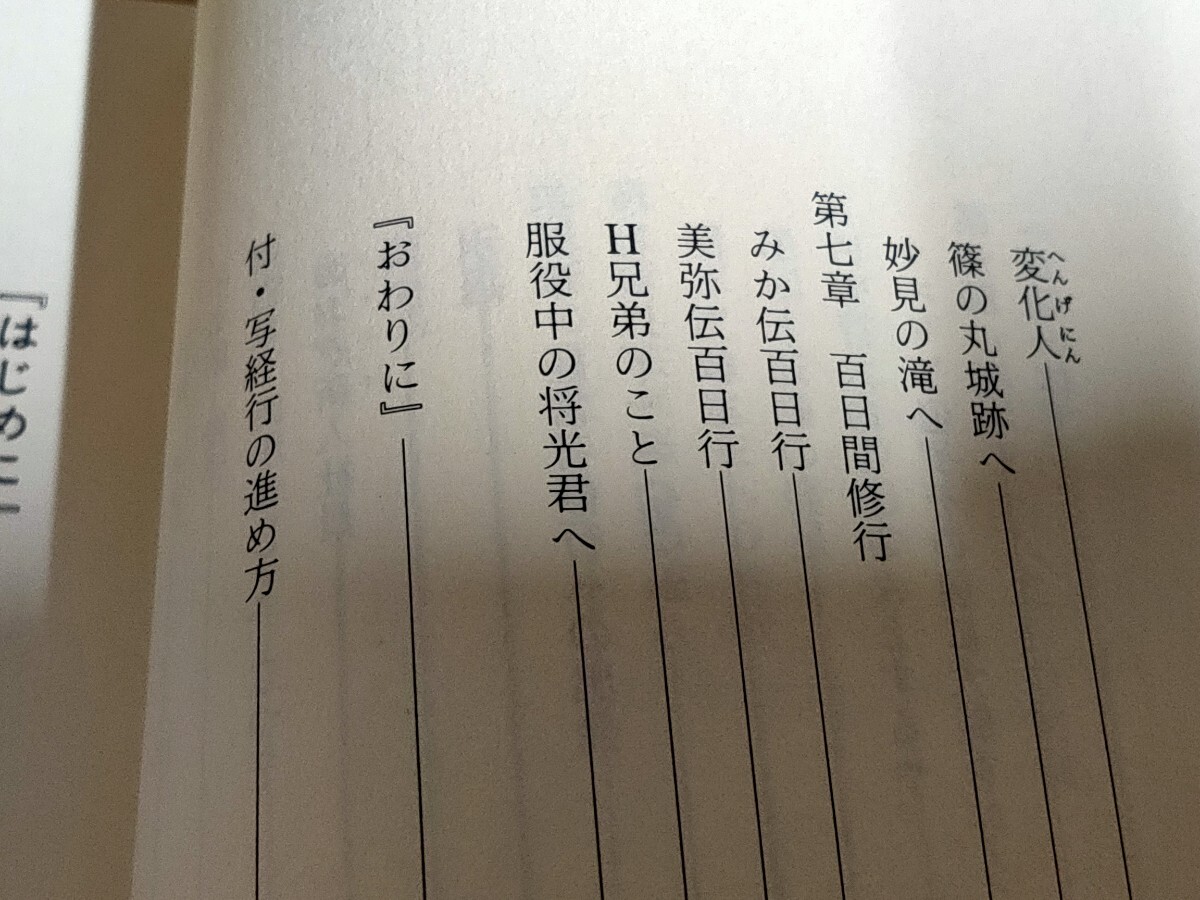 変化人
へんげにん
篠の丸城跡へ
妙見の滝へ
第七章 百日間修行
みか伝百日行
美弥伝百日行
H兄弟のこと
服役中の将光君へ
『おわりに』
付・写経行の進め方
『はじめに